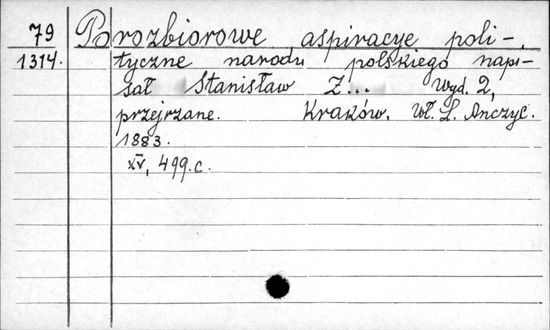 79 Porozbiorowe aspiracye poli-
1314. tyczne narodu polskiego napi
sał Stanisław Z... Wyd. 2,
przejrzane. Kraków. Wł. L. Anczyc.
1883.
XV, 499.c.